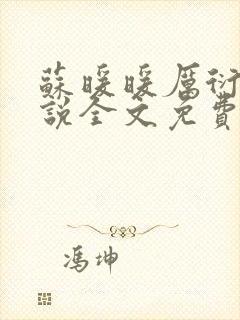 蘇暖暖厲衍
說全文免費
馮坤